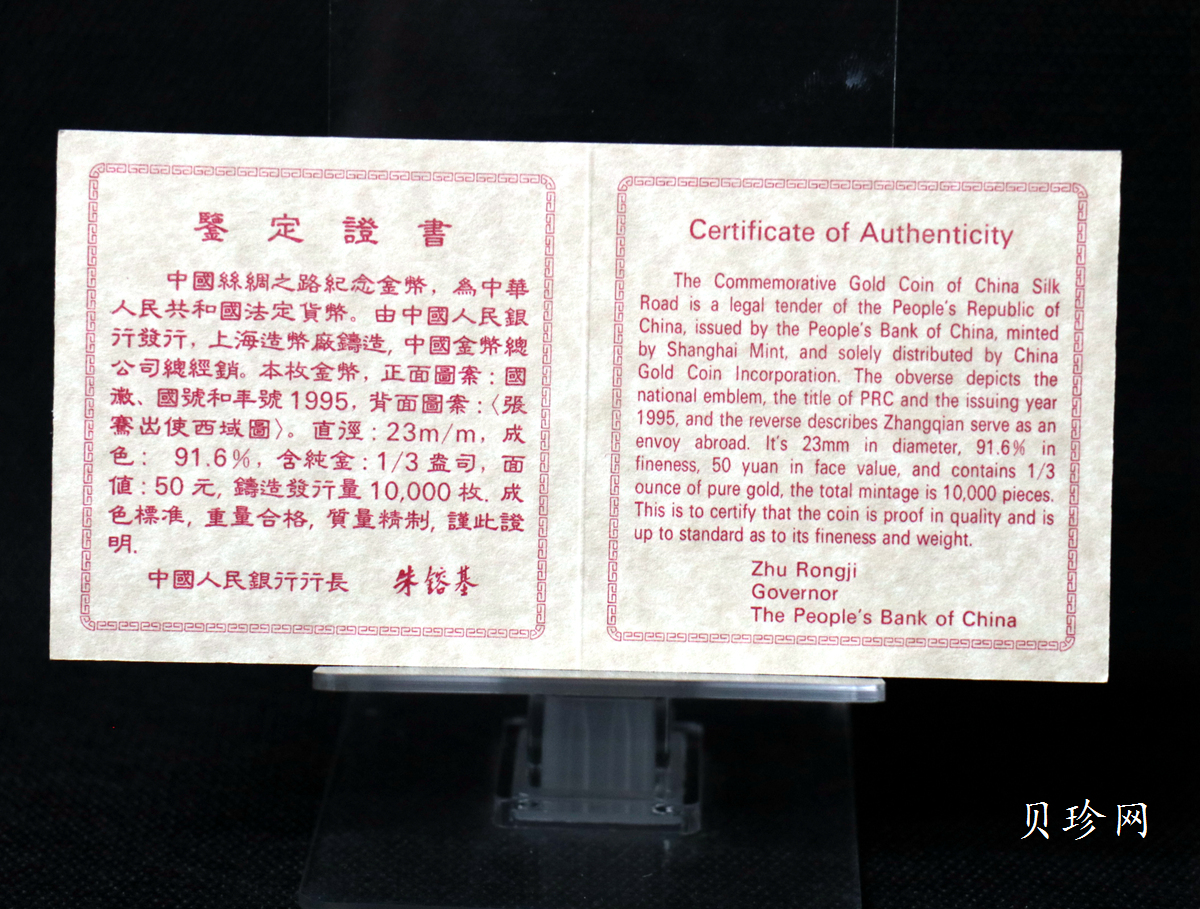 鑒定證書
中國絲綢之路紀念金幣，為中華
人民共和國法定貨幣。由中國人民銀
行發行，上海造幣廠鑄造，中國金幣總
公司總經銷。本枚金幣，正面圖案：國
徽、國號和年號1995，背面圖案：〈張
騫出使西域圖〉。直徑：23m/m，成
色： 91.6%，含純金：1/3盎司，面
值：50元，鑄造發行量10,000枚.成
色標准，重量合格，質量精制，謹此證
明.
中國人民銀行行長 朱鎔基
Certificate of Authenticity
The Commemorative Gold Coin of China Silk
Road is a legal tender of the People's Republic of
China, issued by the People's Bank of China, minted
by Shanghai Mint, and solely distributed by China
Gold Coin Incorporation. The obverse depicts the
national emblem, the title of PRC and the issuing year
1995, and the reverse describes Zhangqian serve as an
envoy abroad. It's 23mm in diameter, 91.6% in
fineness, 50 yuan in face value, and contains 1/3
ounce of pure gold, the total mintage is 10,000 pieces.
This is to certify that the coin is proof in quality and is
up to standard as to its fineness and weight.
Zhu Rongji
Governor
The People's Bank of China
贝珍网